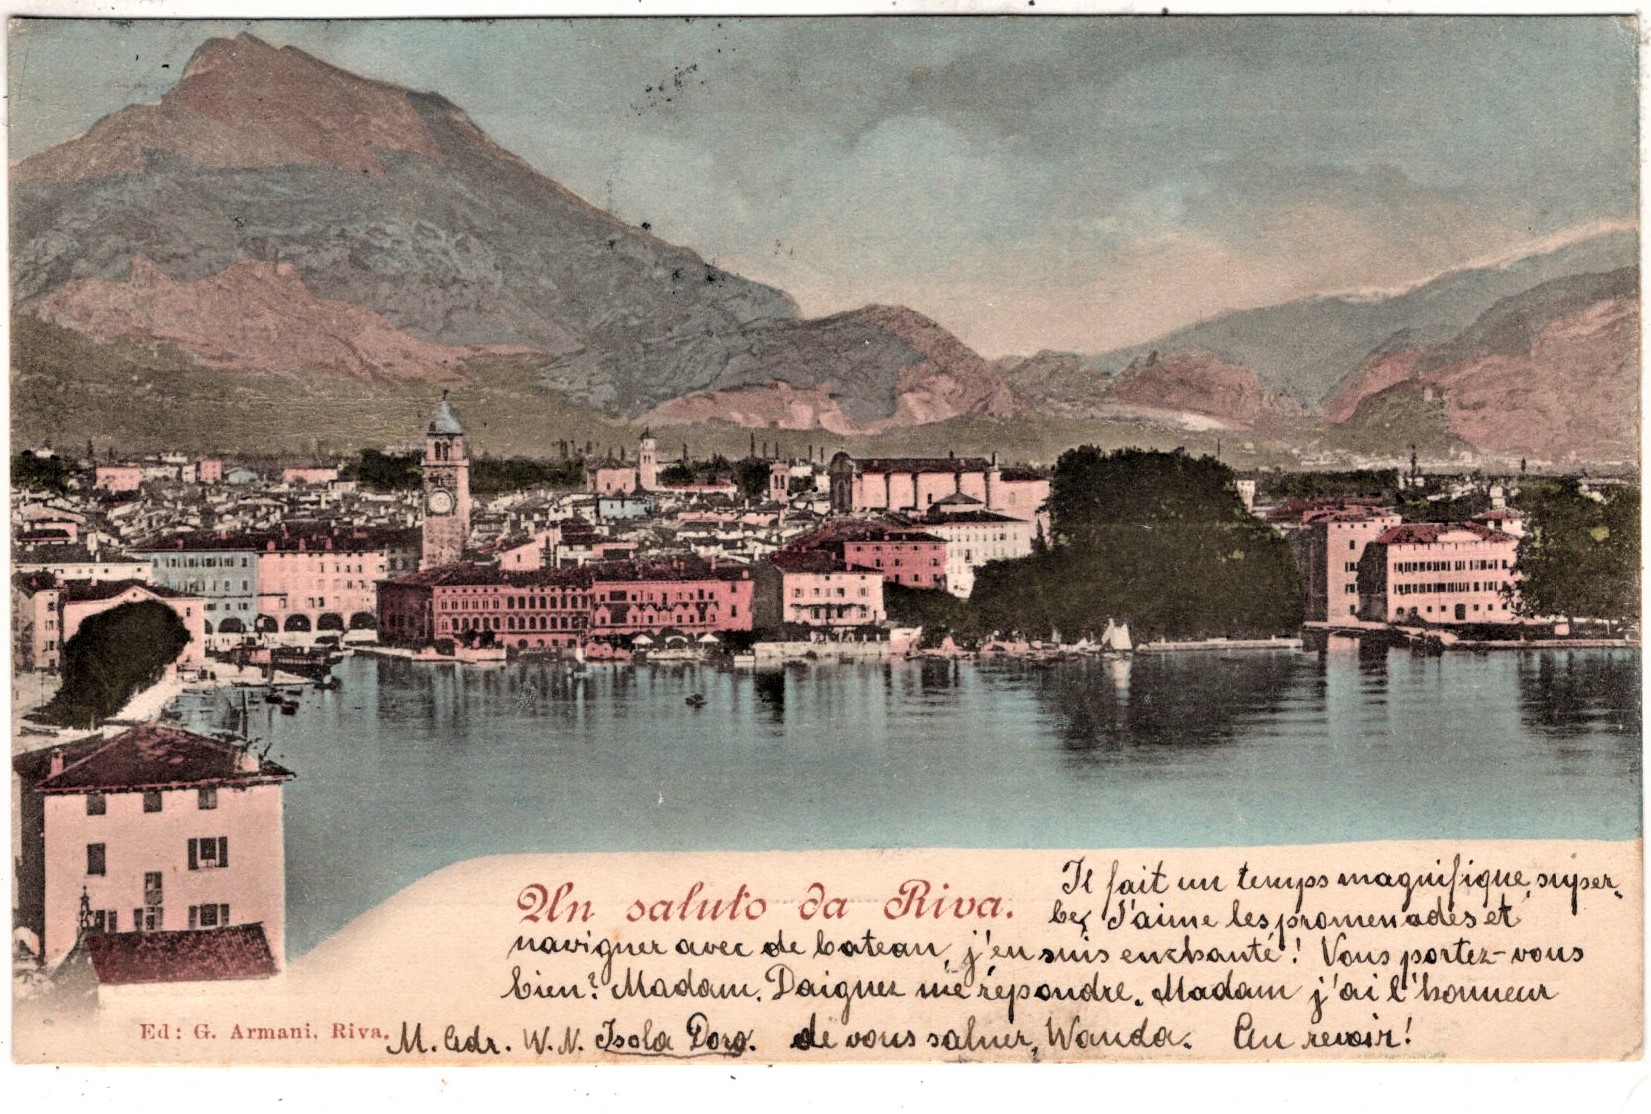 Un saluto da Riva.
Il fait un temps magnifique, super-
be, J'aime les promenades et
navigner avec de bateau, j'en suis enchanté! Vous portez-vous
bien? Madam. Daignez me répondre. Madam j'ai l'honneur
de vous saluer, Wanda. Au revoir!
M. Adr. W. N. Isola Doro.
Ed: G. Armani, Riva.